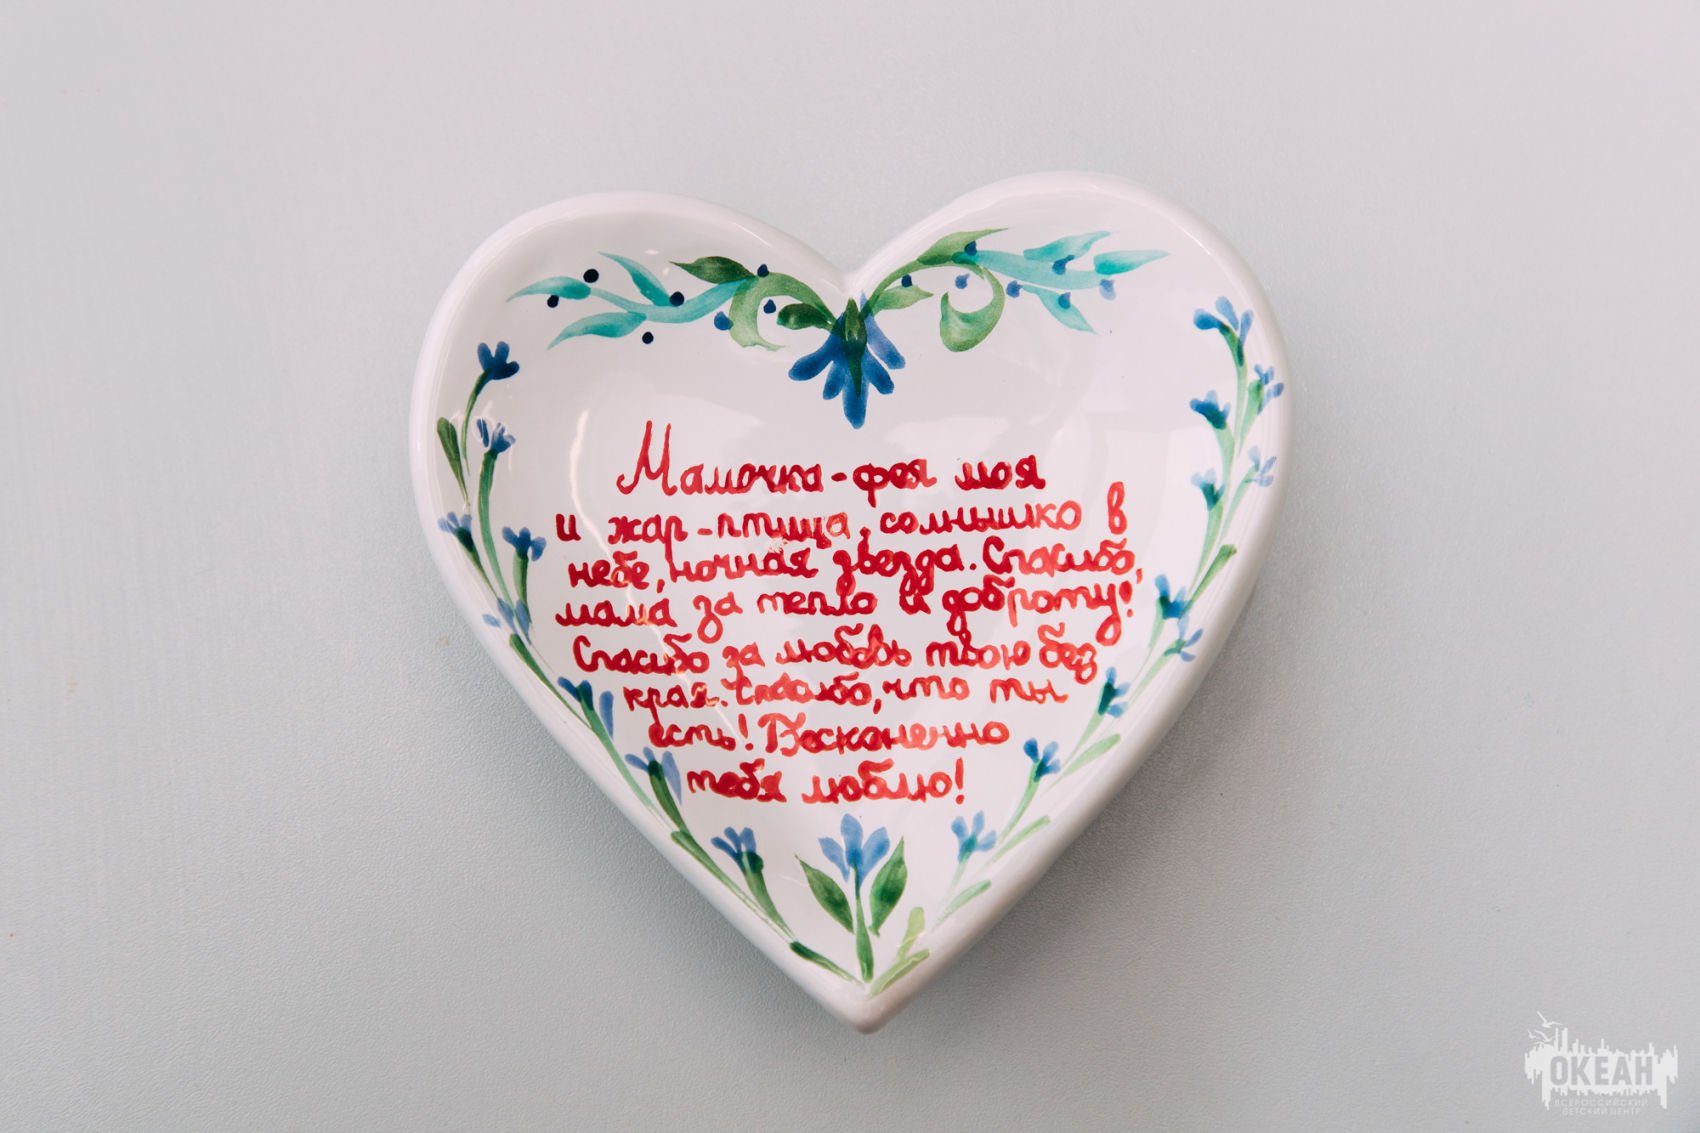 Мамочка-фея моя
и жар-птица, солнышко в
небе, ночная звезда. Спасибо,
мама за тепло и доброту!
Спасибо за любовь твою без
края. Спасибо, что ты
есть! Бесконечно
тебя люблю!
ОКЕАН
ВСЕРОССИЙСКИЙ
ДЕТСКИЙ ЦЕНТР